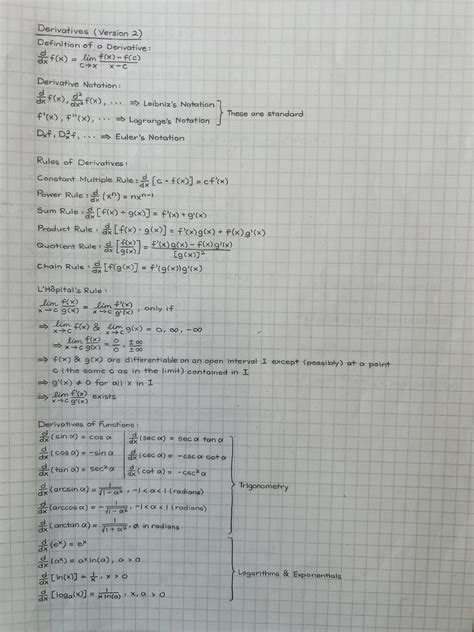 Derivatives (Version 2)
Definition of a Derivative:
d/dx f(x) = lim c→x (f(x) - f(c))/(x - c)
Derivative Notation:
d/dx f(x), d²/dx² f(x), ... ⇒ Leibniz's Notation
f'(x), f''(x), ... ⇒ Lagrange's Notation
These are standard
Dxf, Dx²f, ... ⇒ Euler's Notation
Rules of Derivatives:
Constant Multiple Rule: d/dx [c · f(x)] = cf'(x)
Power Rule: d/dx (xⁿ) = nxⁿ⁻¹
Sum Rule: d/dx [f(x) + g(x)] = f'(x) + g'(x)
Product Rule: d/dx [f(x) · g(x)] = f'(x)g(x) + f(x)g'(x)
Quotient Rule: d/dx [f(x)/g(x)] = (f'(x)g(x) - f(x)g'(x))/[g(x)]²
Chain Rule: d/dx [f(g(x)] = f'(g(x))g'(x)
L'Hôpital's Rule:
lim x→c f(x)/g(x) = lim x→c f'(x)/g'(x), only if
⇒ lim x→c f(x) & lim x→c g(x) = 0, ∞, -∞
⇒ lim x→c f(x)/g(x) = 0/0, ±∞/±∞
⇒ f(x) & g(x) are differentiable on an open interval I except (possibly) at a point
c (the same c as in the limit) contained in I
⇒ g'(x) ≠ 0 for all x in I
⇒ lim x→c f'(x)/g'(x) exists
Derivatives of Functions:
d/dx (sin α) = cos α | d/dx (sec α) = sec α tan α
d/dx (cos α) = -sin α | d/dx (csc α) = -csc α cot α
d/dx (tan α) = sec² α | d/dx (cot α) = -csc² α
d/dx (arcsin α) = 1/√(1-α²), -1 < α < 1 (radians)
Trigonometry
d/dx (arccos α) = -1/√(1-α²), -1 < α < 1 (radians)
d/dx (arctan α) = 1/√(1+α²), α in radians
d/dx (eˣ) = eˣ
d/dx (aˣ) = aˣ ln(a), a > 0
Logarithms & Exponentials
d/dx [ln(x)] = 1/x, x > 0
d/dx [logₐ(x)] = 1/(x ln(a)), x, a > 0